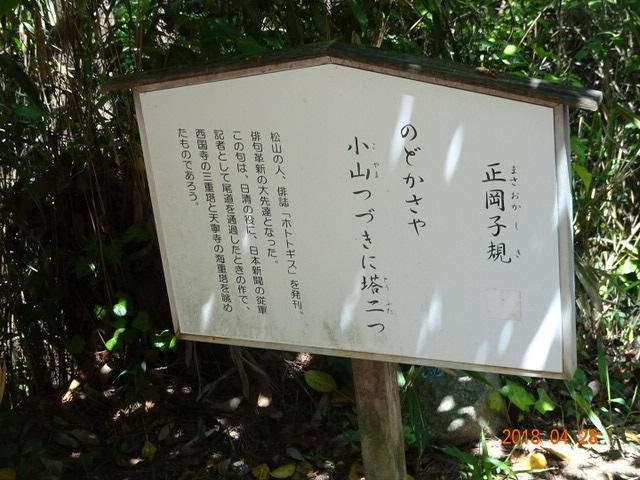 正岡子規
まさおかしき
のどかさや
小山つづきに塔二つ
こやま
とうふた
松山の人、俳誌「ホトトギス」を発刊。
俳句革新の大先達となった。
この句は、日清の役に、日本新聞の従軍
記者として尾道を通過したときの作で、
西国寺の三重塔と天寧寺の海雲塔を眺め
たものであろう。
2018 04 28